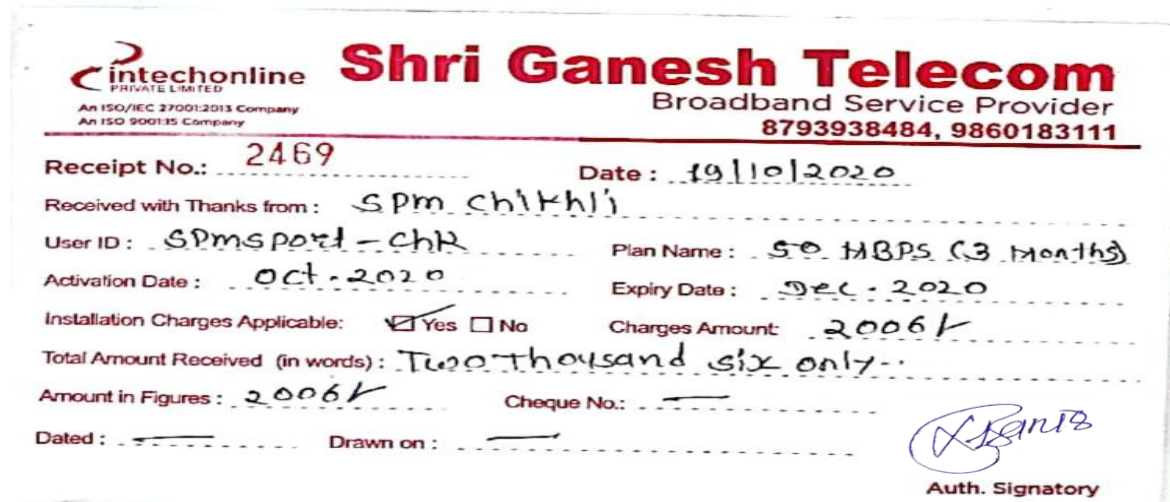 intechonline Shri Ganesh Telecom
PRIVATE LIMITED
An ISO/IEC 27001:2013 Company Broadband Service Provider
An ISO 9001:15 Company 8793938484, 9860183111
Receipt No.: 2469 Date : 19/10/2020
Received with Thanks from : SPM Chikhli
User ID : SPMSPORT-Chk Plan Name : 50 MBPS (3 Months)
Activation Date : Oct-2020 Expiry Date : Dec-2020
Installation Charges Applicable: ☑ Yes ☐ No Charges Amount: 2006/-
Total Amount Received (in words) : Two thousand six only..
Amount in Figures : 2006/- Cheque No.: —
Dated : — Drawn on : —
Auth. Signatory